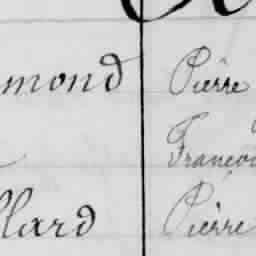 mond Pierre
Françoi
llard Pierre